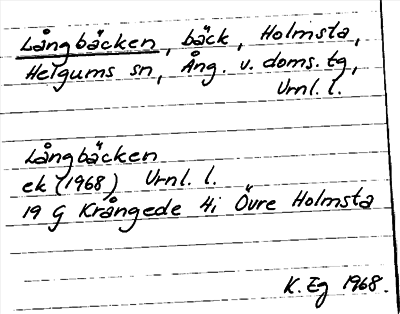 Långbäcken, bäck, Holmsta,
Helgums sn, Ång. v. doms. tg,
Urnl. l.
Långbäcken
ek (1968) Urnl. l.
19 G Krångede 4i Övre Holmsta
K. Eg 1968.